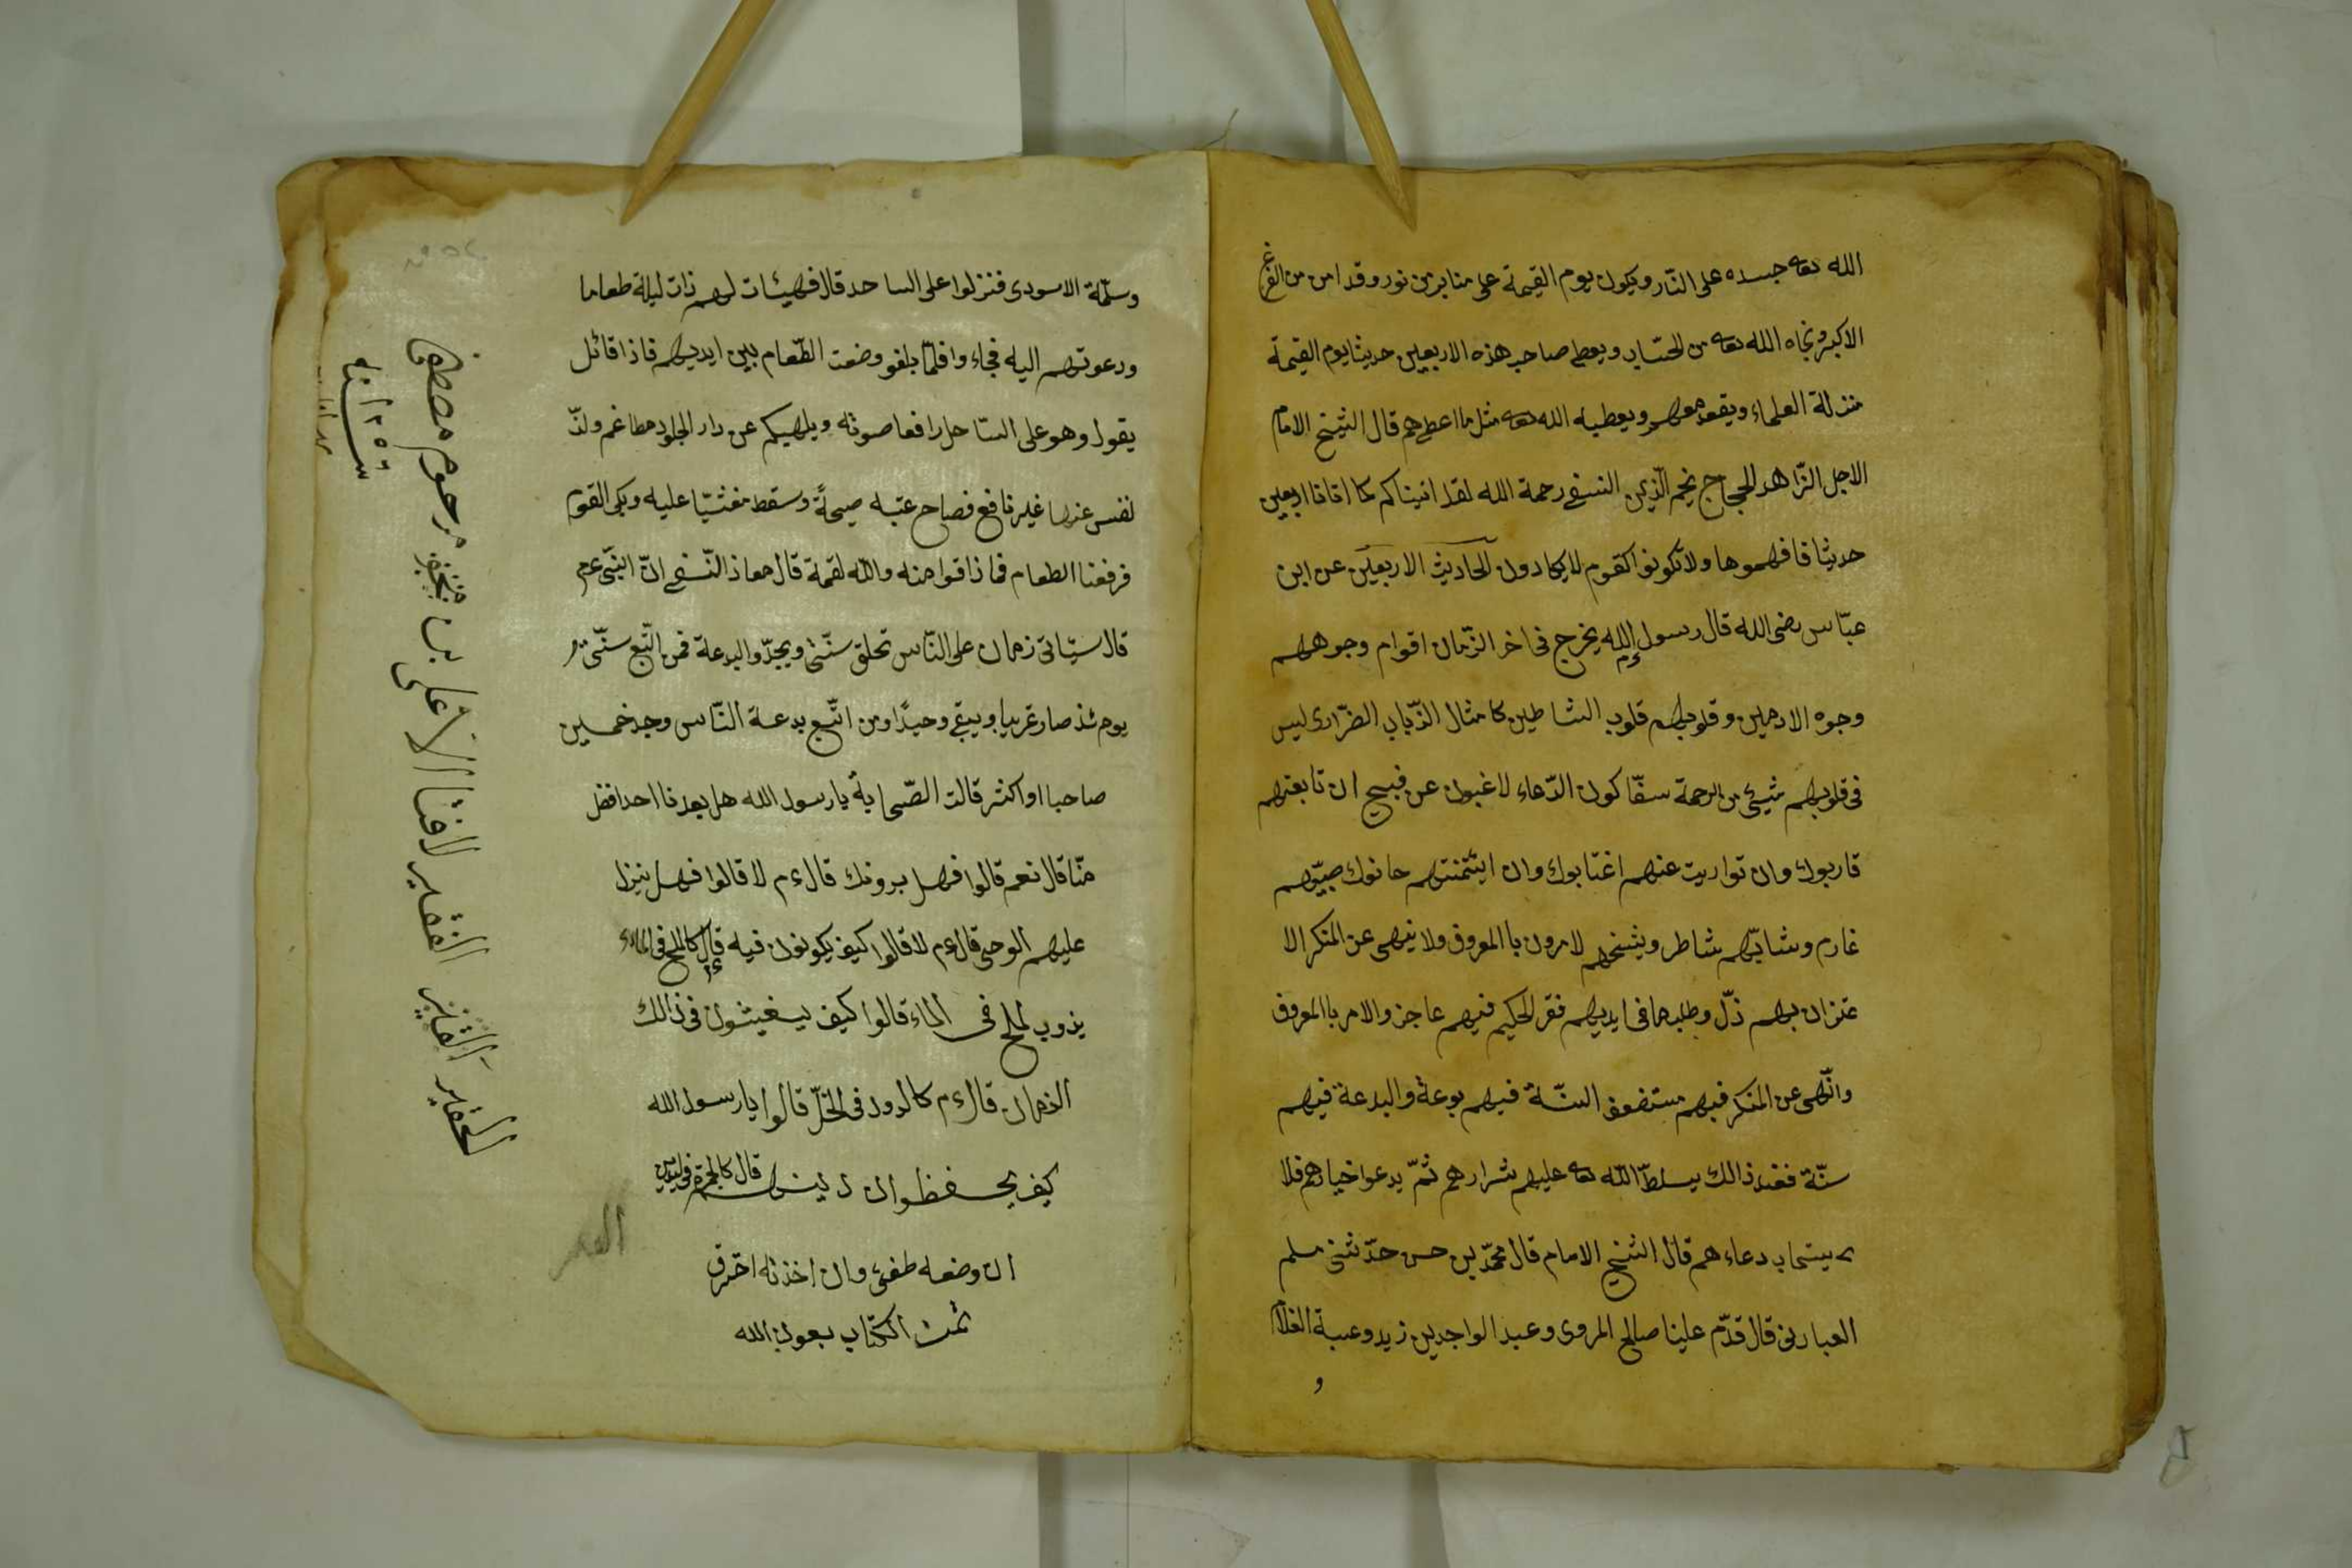 الله تعه جسده على النّار ويكون يوم القيمة على منابر من نور وقد امن من الفزغ
الاكبر ونجاه الله تعه من الحسّاب ويعطى صاحب هذه الاربعين حديثا يوم القيمة
منزلة العلماء ويقعد معهم ويعطيه الله تعه مثل ما اعطى هم قال الشّيخ الامام
الاجل الزّاهد الحجاج نجم الدّين النسفى رحمة الله لقد اتيناكم كما اتانا اربعين
حديثا فافهموها ولا تكونوا كقوم لا يكادون الحاديث الاربعين عن ابن
عبّاس رضى الله قال رسول الله يخرج فى اخر الزّمان اقوام وجوههم
وجوه الادمين وقلوبهم قلوب الشاطين كامثال الذّباب الضرّارى ليس
فى قلوبهم شيئ من الرحمة سفّاكون الدّماء لا عبون عن قبيح ان تابعتهم
قاربوك وان تواريت عنهم اغتابوك وان ايتمنتهم خانوك صبيّهم
غارم وشابّهم شاطر وشيخهم لامرون باالمعروف ولا ينهى عن المنكر الا
عتزان بهم ذلّ وطلب ما فى ايديهم فقر الحكيم فيهم عاجز والامر باالمعروف
وانّهى عن المنكر فيهم مستضعف السنّة فيهم بوعة والبدعة فيهم
سنّة فعند ذالك يسلطّ الله تعه عليهم شرارهم ثمّ يدعوا خيارهم فلا
يستجاب دعاءهم قال الشيخ الامام قال محمّد بن حسن حدّثنى مسلم
العبادنى قال قدّم علينا صالح المروى وعبد الواحد بن زيد وعتبة الغلام
و
وسلّمة الاسودى فنزلوا على الساحد قال فهيئات لهم ذات ليلة طعاما
ودعوتهم اليه فجاءوا فلمّا بلغو وضعت الطّعام بين ايديهم فاذا قائل
يقول وهو على السّاحل رافعا صوته ويلهيكم عن دار الخلود مطاعم ولذّ
نفس عنها غير نافع فصاح عتبه صيحةً وسقط مغشيّا عليه وبكى القوم
فرفعنا الطعام فما ذاقوا منه والله لقمة قال معاذ النّسفى انّ النبّى عم
قال سيّاتى زمان على النّاس تخلق سنّتى ويجدّوا البدعة فمن اتّبع سنّتى
يومئذ صار غريبا ويبقى وحيدًا ومن اتّبع بدعة النّاس وجد خمسين
صاحبا او اكثر قالت الصّحابة يا رسول الله هل بعدنا احد افضل
منّا قال نعم قالوا فهل يرونك قال ءم لا قالوا فهل ينزل
عليهم الوحى قال ءم لا قالوا كيف يكونون فيه قال كالملح فى الماء
يذوب لملح فى الماء قالوا كيف يغيشون فى ذالك
الزمان قال ءم كالدود فى الخلّ قالوا يا رسول الله
كيف يحفظوان دينهم قال كالجمرة فى اليد
ان وضعه طفئ وان اخذته احترق
تمت الكتاب بعون الله
الحقير الفقير لافنا الاعلى بن مرحوم مصطفا
سنه ١٢٥٦